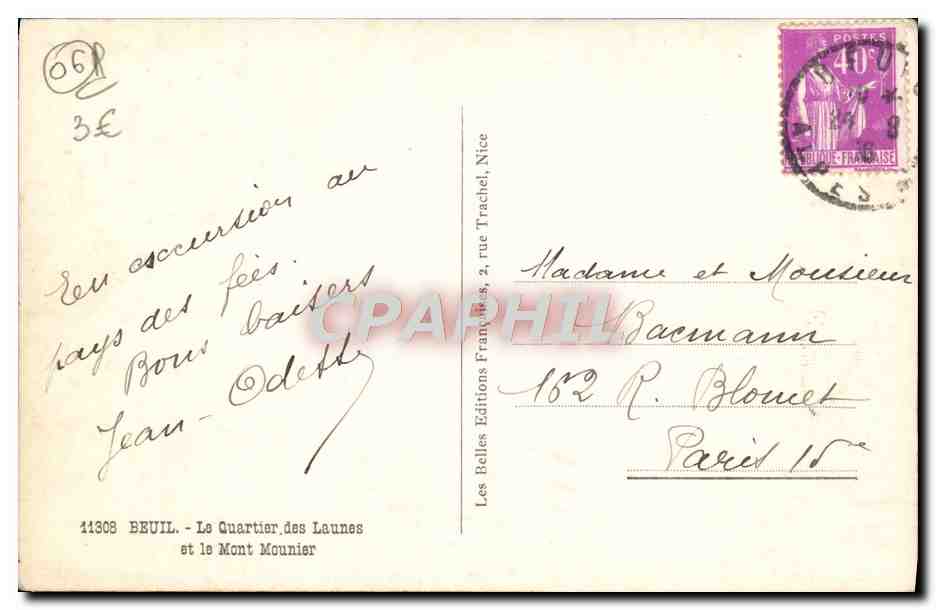 06
3€
En excursion au
pays des fées.
Bons baisers
Jean - Odette
11308 BEUIL. - Le Quartier des Launes
et le Mont Mounier
Les Belles Editions Françaises, 2, rue Trachel, Nice
POSTES
40c
RÉPUBLIQUE-FRANÇAISE
BEUIL
24 8
36
ALPES
Madame et Monsieur
Bacmann
162 R. Blomet
Paris 15e
CPAPHIL